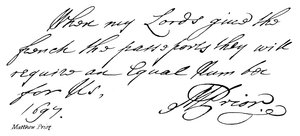 When my Lords give the
french the passeports they will
require an Equal Number
for Us,
1697.
MPrior.
Matthew Prior